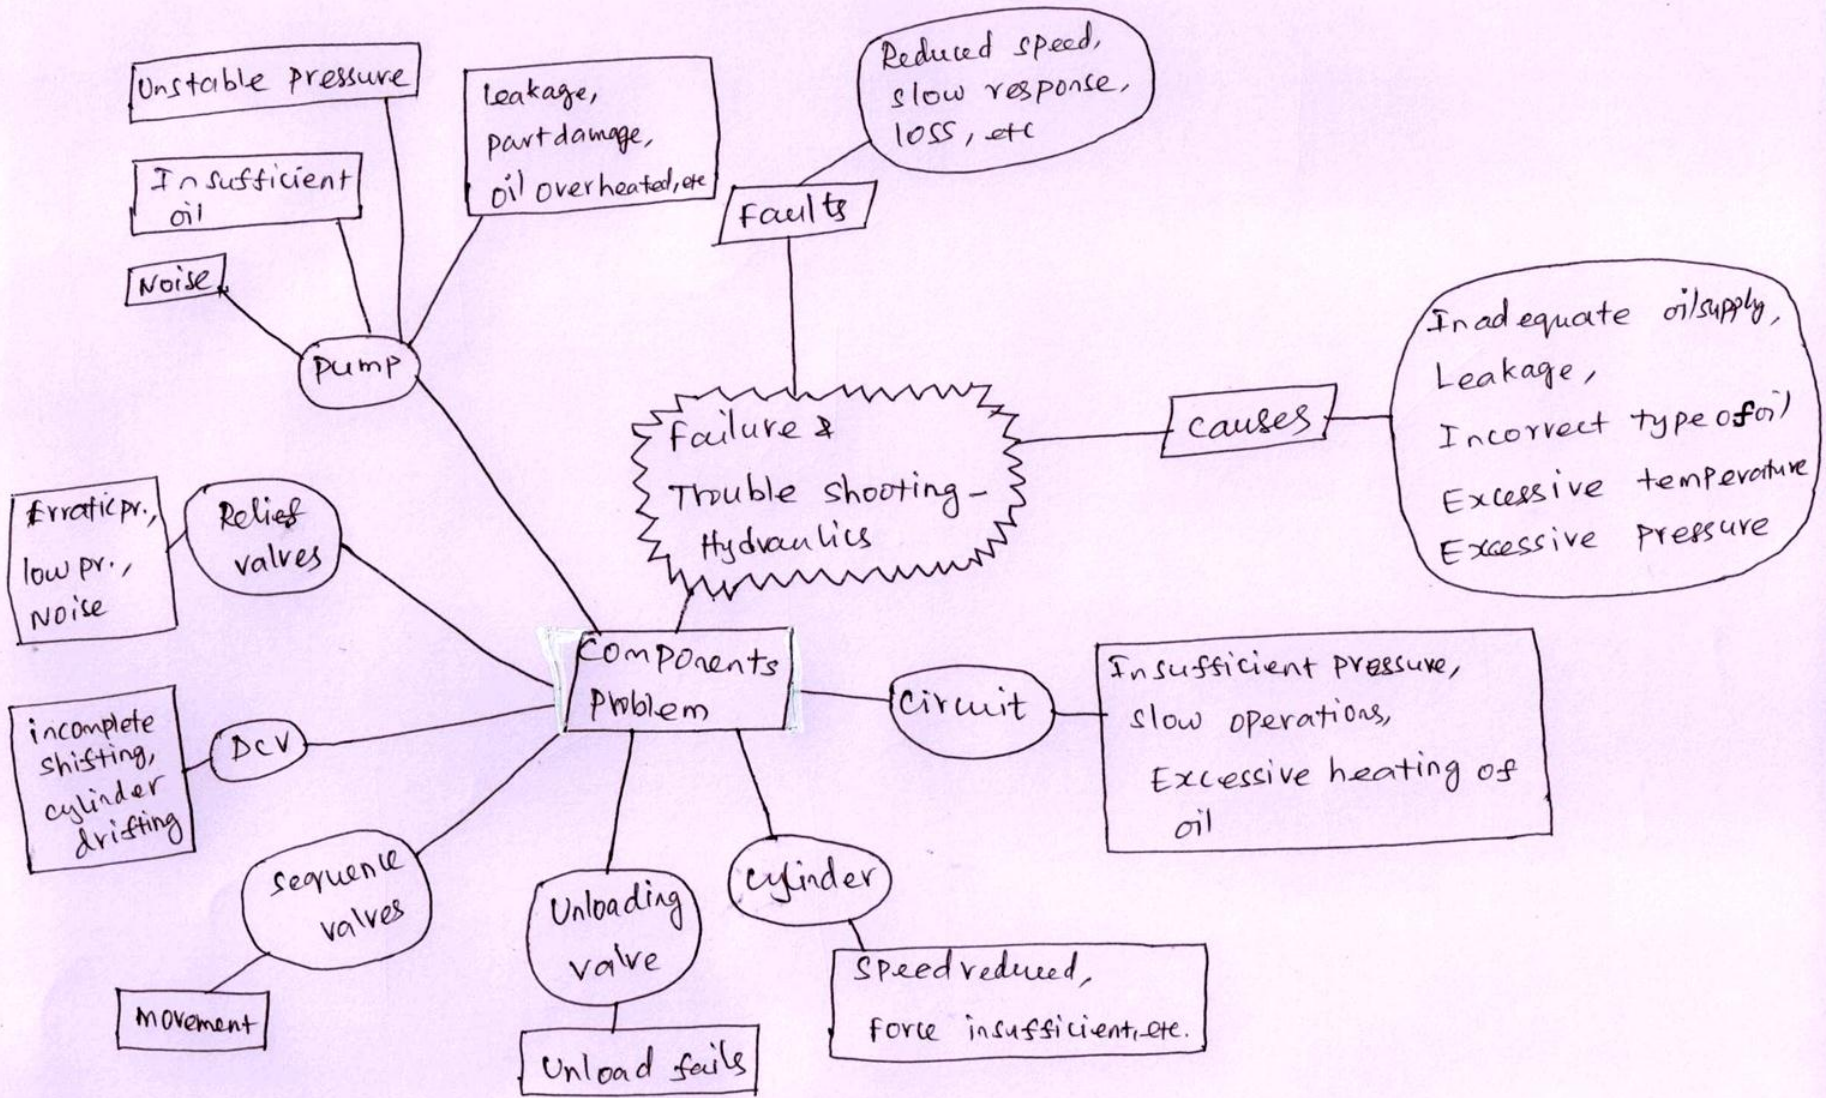 Unstable pressure
Insufficient
oil
Noise
leakage,
part damage,
oil overheated, etc
Pump
Reduced speed,
slow response,
loss, etc
Faults
Failure &
Trouble shooting -
Hydraulics
causes
Inadequate oil supply,
Leakage,
Incorrect type of oil
Excessive temperature
Excessive pressure
Erratic pr.,
low pr.,
Noise
Relief
valves
Components
Problem
circuit
Insufficient pressure,
slow operations,
Excessive heating of
oil
incomplete
shifting,
cylinder
drifting
DCV
Sequence
valves
movement
Unloading
valve
Unload fails
cylinder
Speed reduced,
Force insufficient, etc.